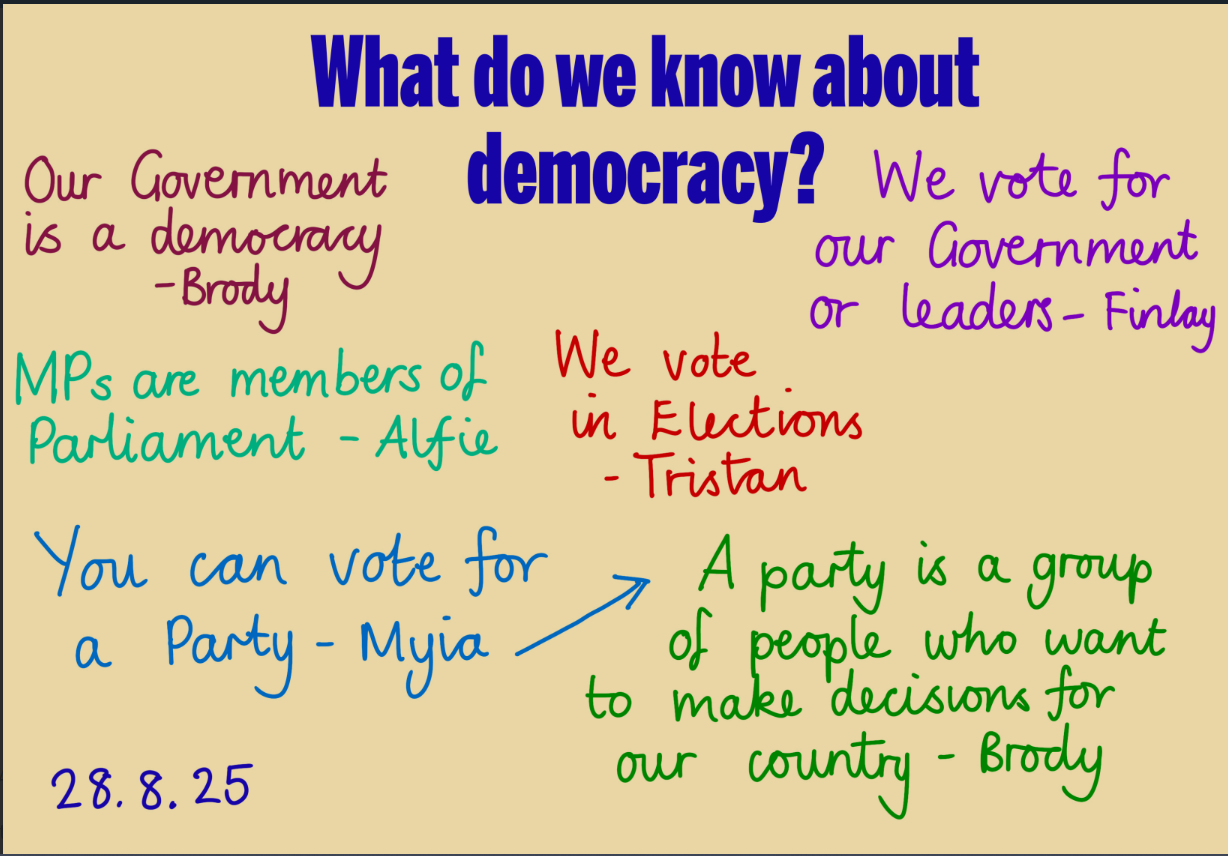 What do we know about
democracy?
Our Government
is a democracy
-Brody
We vote for
our Government
or leaders- Finlay
MPs are members of
Parliament - Alfie
We vote
in Elections
- Tristan
You can vote for
a Party - Myia
A party is a group
of people who want
to make decisions for
our country - Brody
28.8.25